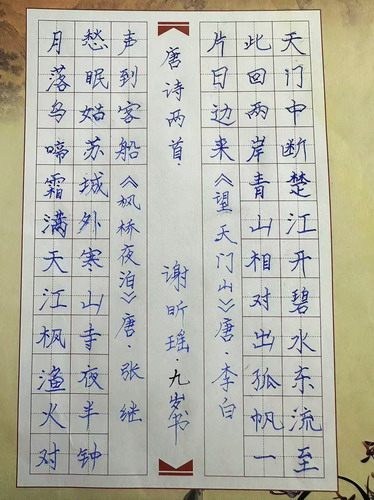 天门中断楚江开碧水东流至
此回两岸青山相对出孤帆一
片日边来《望天门山》唐·李白
唐诗两首·
谢昕瑶·九岁书
月落乌啼霜满天江枫渔火对
愁眠姑苏城外寒山寺夜半钟
声到客船《枫桥夜泊》唐·张继